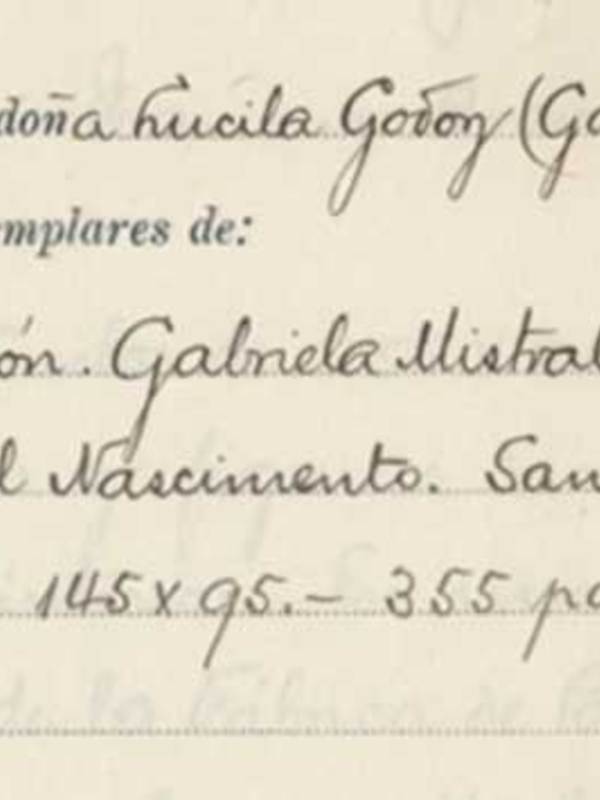 doña Lucila Godoy (Go
emplares de:
ón. Gabriela Mistral
l Nascimento. San
145 x 95.- 355 pa